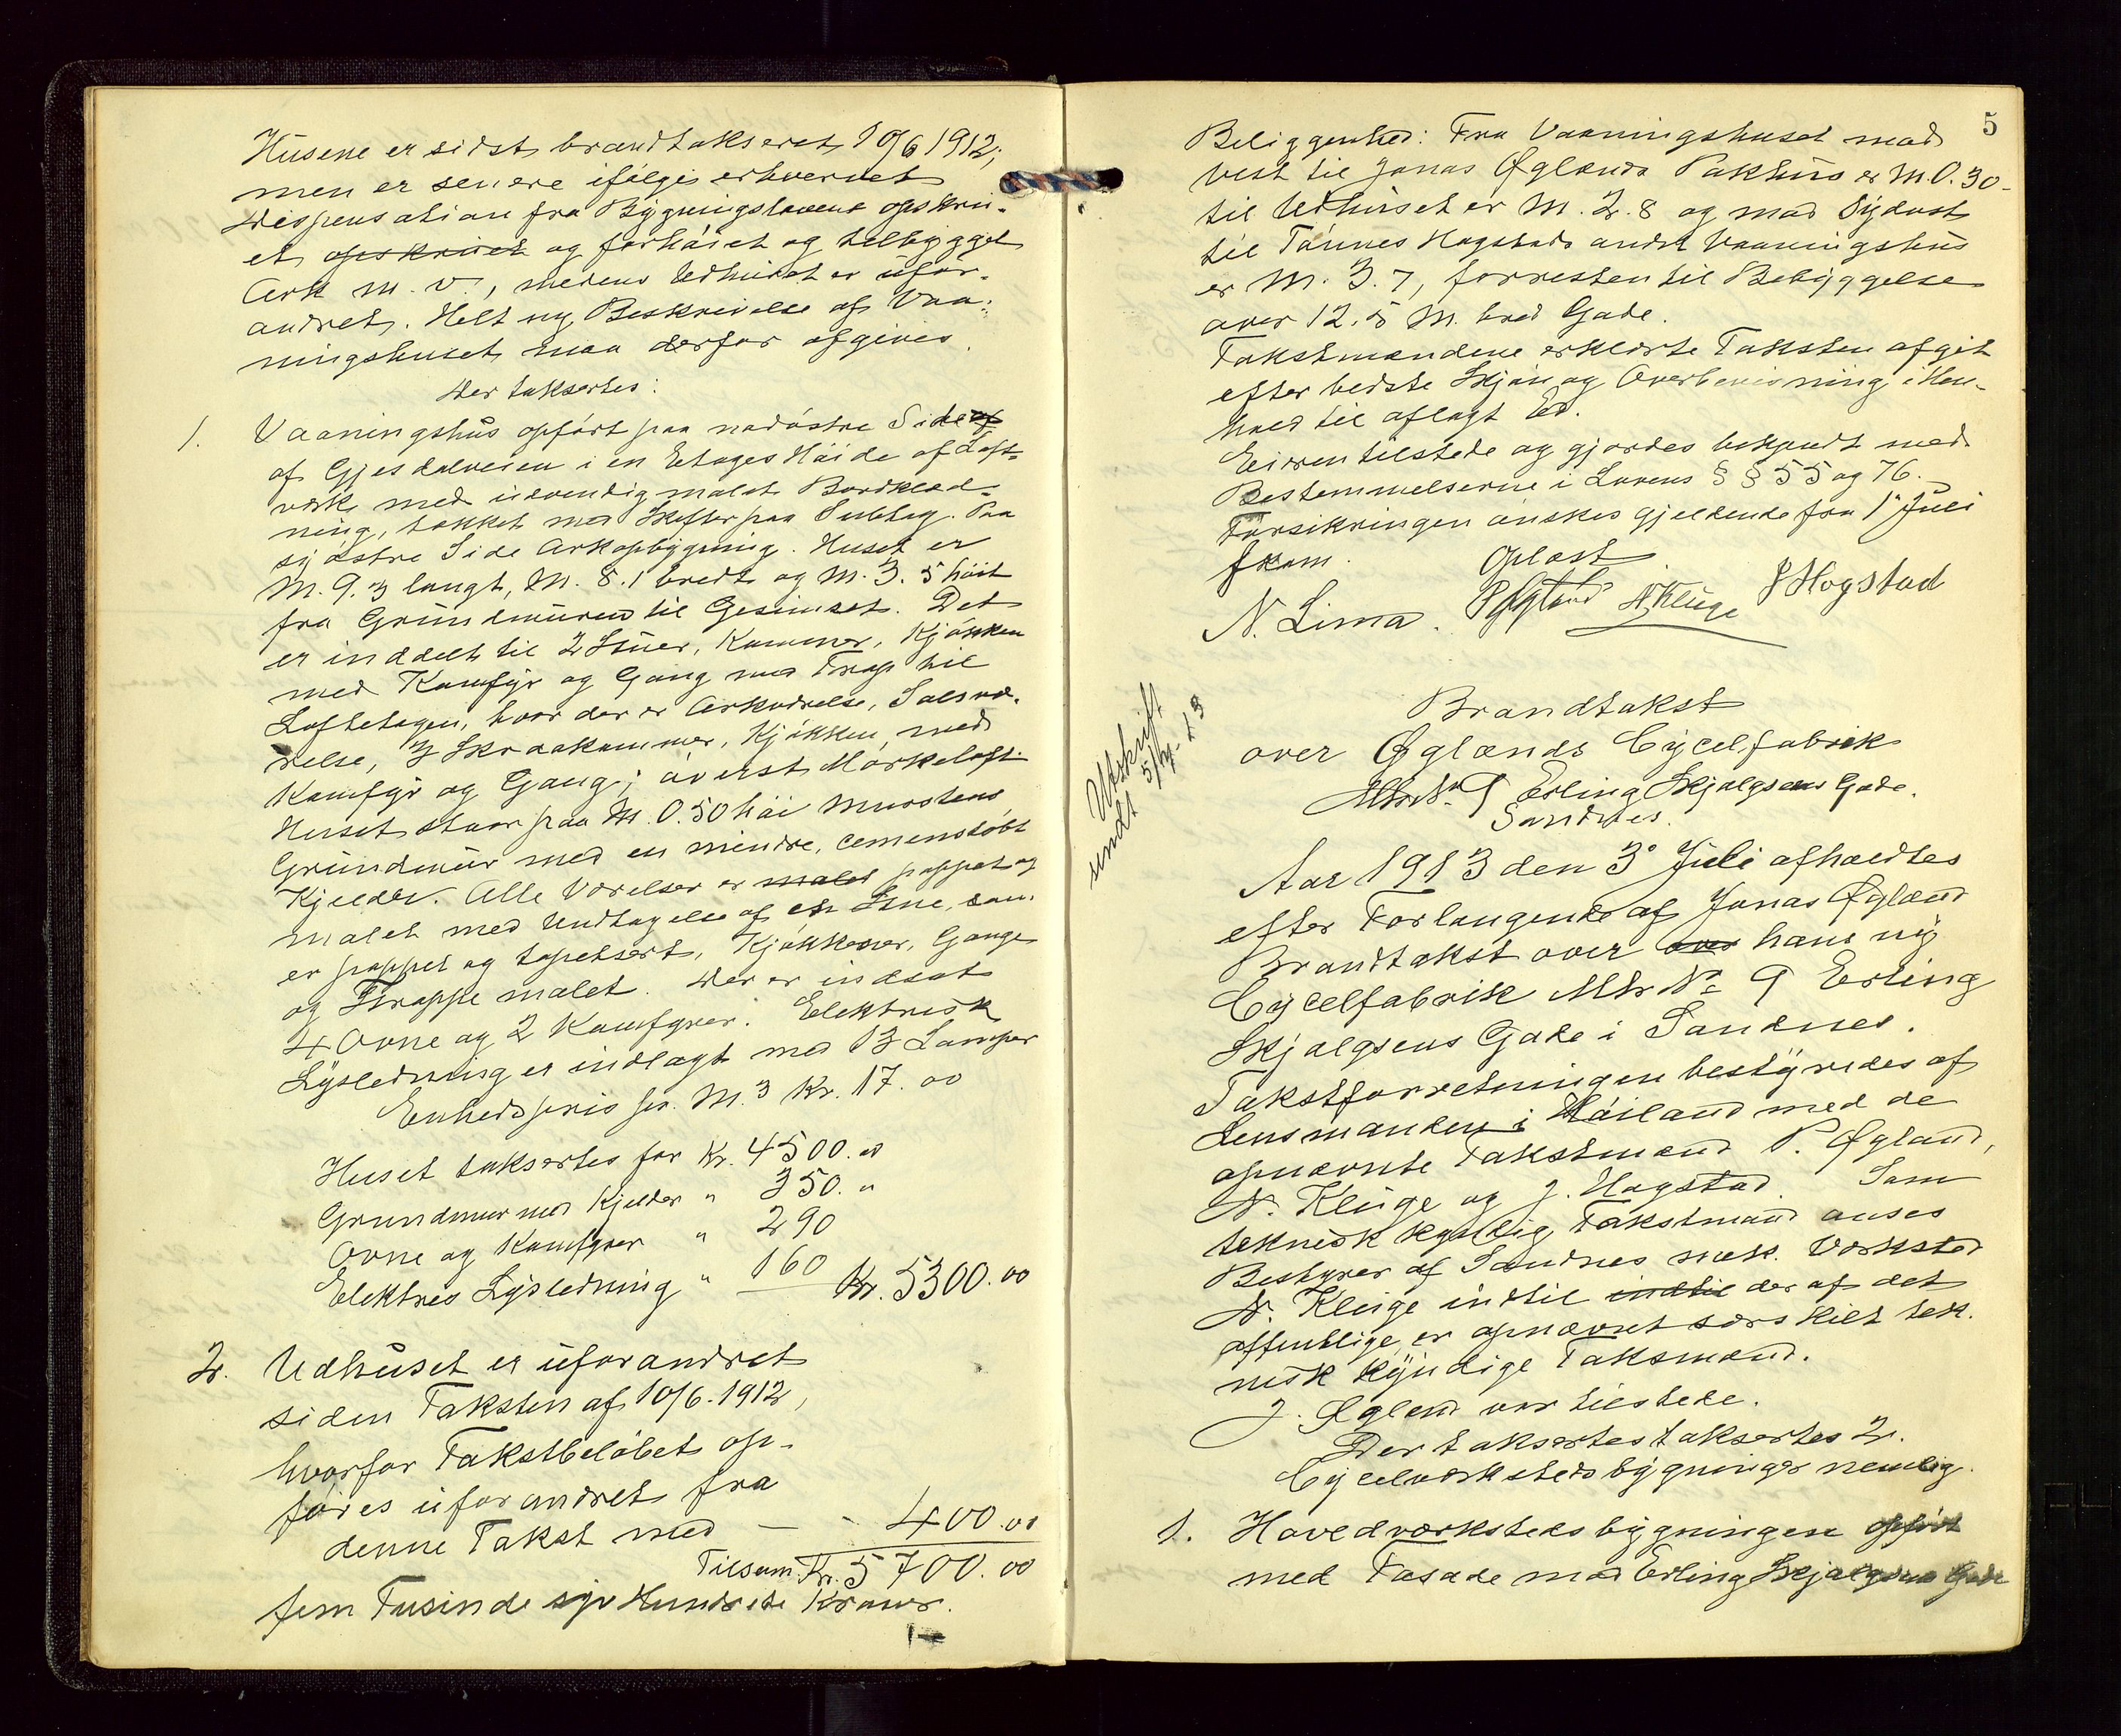 Husene er sidst brandtakseret 10/6 1912,
men er senere ifølge erhvervet
Dispensation fra Bygningslovens opskru-
et opskruet og forhøiet og tilbygget
Ark m. v., medens Udhuset er ufor-
andret. Helt ny Beskrivelse af Vaa-
ningshuset maa derfor afgives.
Der taksertes:
1. Vaaningshus opført paa nordøstre Side af
af Gjesdalveien i en Etages Høide af Loft-
værk med udvendig malet Bordklæd-
ning, tækket med Skifter paa Subtag. Paa
sydøstre Side Arkopbygning. Huset er
M. 9.3 langt, M. 8.1 bredt og M. 3.5 høit
fra Grundmuren til Gesimset. Det
er inddelt til 2 Stuer, Kammer, Kjøkken
med Komfyr og Gang med Trap til
Loftetagen, hvor der er Arkværelse, Salsvæ-
relse, 3 Skraakammer, Kjøkken med
Komfyr og Gang; øverst Mørkeloft
Huset staar paa M. 0.50 høi Murstens
Grundmur med en mindre, cementstøbt
Kjelder. Alle Værelser er malet pappet og
malet med Undtagelse af en Stue, som
er pappet og tapetsert, Kjøkkener, Gange
og Trappe malet. Der er indsat
4 Ovne og 2 Komfyrer. Elektrisk
Lysledning er indlagt med 13 Lamper
Enhedspris pr. M.3 Kr. 17.00
Huset taksertes for Kr. 4500.00
Grundmur med Kjelder " 350. "
Ovne og Komfyrer " 290
Elektres Lysledning " 160 Kr. 5300.00
2. Udhuset er uforandret
siden Taksten af 10/6. 1912,
hvorfor Takstbeløbet op-
føres uforandret fra
denne Takst med — - 400.00
Tilsam. Kr. 5700.00
fem Tusinde syv Hundrede Kroner.
5
Beliggenhed: Fra Vaaningshuset mod
Vest til Jonas Øglænds Pakhus er M. 0.30-
til Udhuset er M. 2.8 og mod Sydost
til Tønnes Hagstads andet Vaaningshus
er M. 3.7, forresten til Bebyggelse
over 12.5 M. bred Gade.
Takstmændene erklærte Taksten afgit
efter bedste Skjøn og Overbevisning i Hen-
hold til aflagt Ed.
Eieren tilstede og gjordes bekjendt med
Bestemmelserne i Lovens § § 55 og 76.
Forsikringen ønskes gjeldende fra 1' Juli
fkom. Oplæst
N. Lima. P Øglænd N Kluge J Hogstad
Utskrift
sendt 5/7-13
Brandtakst
over Øglænds Cycelfabrik
Mtr. N° 9 Erling Skjalgsøns Gade.
Sandnes.
Aar 1913 den 3° Juli afholdtes
efter Forlangende af Jonas Øglænd
Brandtakst over over hans ny
Cycelfabrik Mtr N° 9 Erling
Skjalgsøns Gade i Sandnes.
Takstforretningen bestyredes af
Lensmanden i Høiland med de
opnævnte Takstmænd P. Øglænd,
N. Kluge og J. Hagstad. Som
teknisk kyndig Takstmand anses
Bestyrer af Sandnes mek. Verksted
N. Kluge indtil indtil der af det
offentlige er opnævnt særskilt tek-
nisk kyndige Taksmænd.
J. Øglænd var tilstede.
Der taksertes taksertes 2.
Cycelværkstedsbygninger nemlig.
1. Hovedværkstedsbygningen opført
med Fasade mod Erling Skjalgsøns Gade